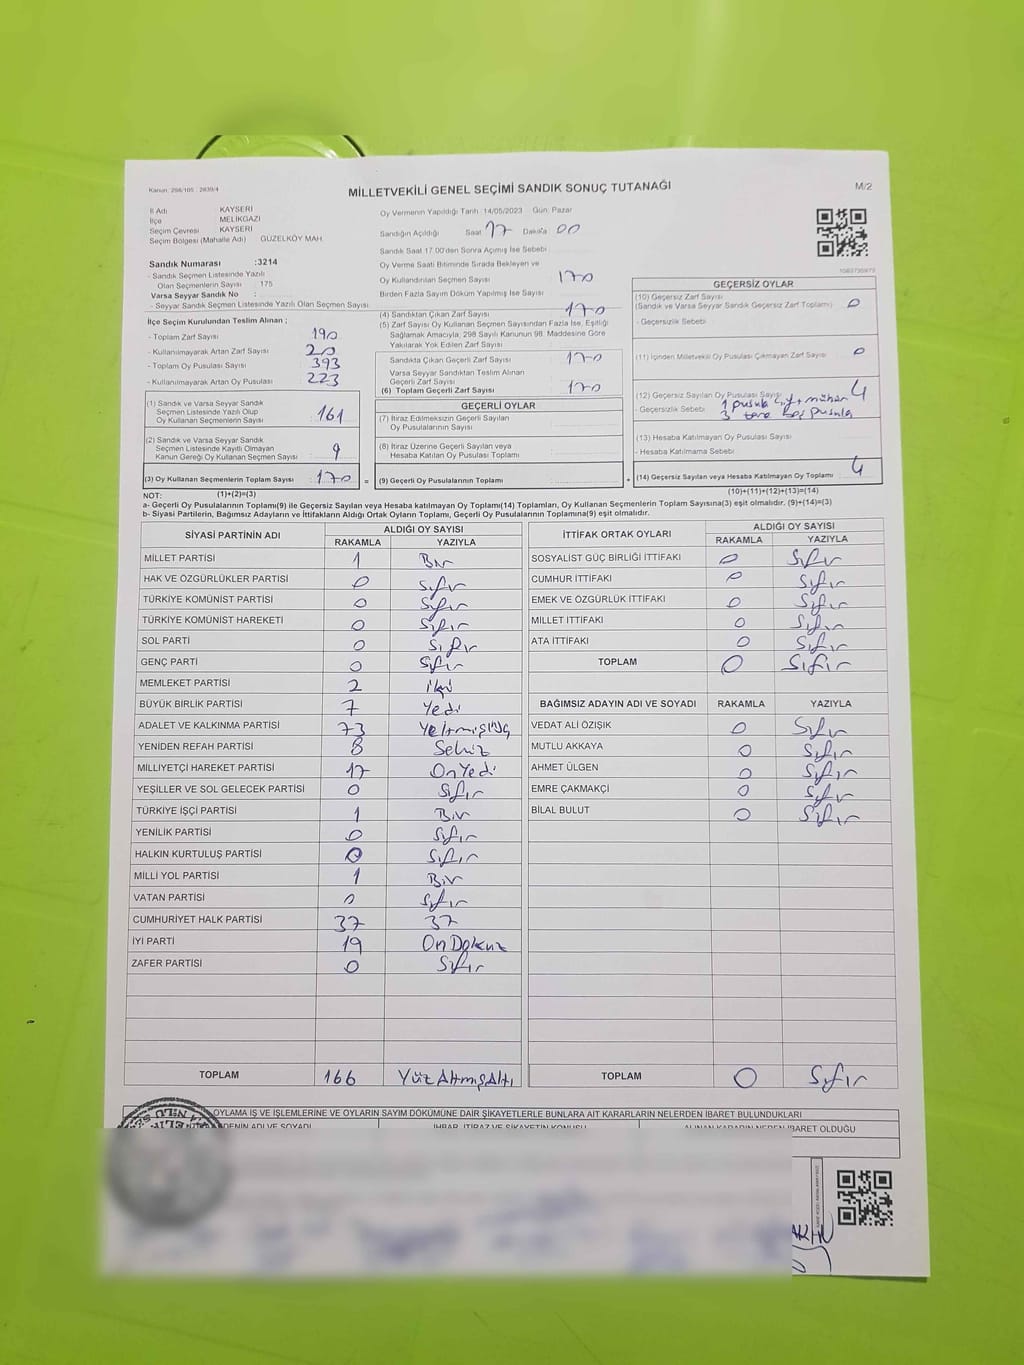 Kanun: 298/105 : 2839/4
MİLLETVEKİLİ GENEL SEÇİMİ SANDIK SONUÇ TUTANAĞI
M/2
İl Adı KAYSERİ
İlçe MELİKGAZİ
Seçim Çevresi KAYSERİ
Seçim Bölgesi (Mahalle Adı) GÜZELKÖY MAH.
Sandık Numarası :3214
- Sandık Seçmen Listesinde Yazılı
Olan Seçmenlerin Sayısı : 175
Varsa Seyyar Sandık No :
- Seyyar Sandık Seçmen Listesinde Yazılı Olan Seçmen Sayısı
Oy Vermenin Yapıldığı Tarih :14/05/2023 Gün: Pazar
Sandığın Açıldığı Saat 17 Dakika 00
Sandık Saat 17.00'den Sonra Açılmış İse Sebebi
Oy Verme Saati Bitiminde Sırada Bekleyen ve
Oy Kullandırılan Seçmen Sayısı 170
Birden Fazla Sayım Döküm Yapılmış İse Sayısı
İlçe Seçim Kurulundan Teslim Alınan ;
- Toplam Zarf Sayısı 190
- Kullanılmayarak Artan Zarf Sayısı 20
- Toplam Oy Pusulası Sayısı 393
- Kullanılmayarak Artan Oy Pusulası 223
(1) Sandık ve Varsa Seyyar Sandık
Seçmen Listesinde Yazılı Olup
Oy Kullanan Seçmenlerin Sayısı 161
(2) Sandık ve Varsa Seyyar Sandık
Seçmen Listesinde Kayıtlı Olmayan
Kanun Gereği Oy Kullanan Seçmen Sayısı 9
(3) Oy Kullanan Seçmenlerin Toplam Sayısı 170 =
(4) Sandıktan Çıkan Zarf Sayısı 170
(5) Zarf Sayısı Oy Kullanan Seçmen Sayısından Fazla İse, Eşitliği
Sağlamak Amacıyla, 298 Sayılı Kanunun 98. Maddesine Göre
Yakılarak Yok Edilen Zarf Sayısı
Sandıkta Çıkan Geçerli Zarf Sayısı 170
Varsa Seyyar Sandıktan Teslim Alınan
Geçerli Zarf Sayısı
(6) Toplam Geçerli Zarf Sayısı 170
GEÇERLİ OYLAR
(7) İtiraz Edilmeksizin Geçerli Sayılan
Oy Pusulalarının Sayısı
(8) İtiraz Üzerine Geçerli Sayılan veya
Hesaba Katılan Oy Pusulası Toplamı
(9) Geçerli Oy Pusulalarının Toplamı +
1083735973
GEÇERSİZ OYLAR
(10) Geçersiz Zarf Sayısı
(Sandık ve Varsa Seyyar Sandık Geçersiz Zarf Toplamı) 0
- Geçersizlik Sebebi
(11) İçinden Milletvekili Oy Pusulası Çıkmayan Zarf Sayısı 0
(12) Geçersiz Sayılan Oy Pusulası Sayısı 4
- Geçersizlik Sebebi 1 pusula mühür
3 tane boş pusula
(13) Hesaba Katılmayan Oy Pusulası Sayısı
- Hesaba Katılmama Sebebi
(14) Geçersiz Sayılan veya Hesaba Katılmayan Oy Toplamı 4
NOT: (1)+(2)=(3) (10)+(11)+(12)+(13)=(14)
a- Geçerli Oy Pusulalarının Toplamı(9) ile Geçersiz Sayılan veya Hesaba katılmayan Oy Toplamı(14) Toplamları, Oy Kullanan Seçmenlerin Toplam Sayısına(3) eşit olmalıdır. (9)+(14)=(3)
b- Siyasi Partilerin, Bağımsız Adayların ve İttifakların Aldığı Ortak Oyların Toplamı, Geçerli Oy Pusulalarının Toplamına(9) eşit olmalıdır.
SİYASİ PARTİNİN ADI ALDIĞI OY SAYISI
RAKAMLA YAZIYLA
MİLLET PARTİSİ 1 Bir
HAK VE ÖZGÜRLÜKLER PARTİSİ 0 Sıfır
TÜRKİYE KOMÜNİST PARTİSİ 0 Sıfır
TÜRKİYE KOMÜNİST HAREKETİ 0 Sıfır
SOL PARTİ 0 Sıfır
GENÇ PARTİ 0 Sıfır
MEMLEKET PARTİSİ 2 iki
BÜYÜK BİRLİK PARTİSİ 7 Yedi
ADALET VE KALKINMA PARTİSİ 73 Yetmişüç
YENİDEN REFAH PARTİSİ 8 Sekiz
MİLLİYETÇİ HAREKET PARTİSİ 17 OnYedi
YEŞİLLER VE SOL GELECEK PARTİSİ 0 Sıfır
TÜRKİYE İŞÇİ PARTİSİ 1 Bir
YENİLİK PARTİSİ 0 Sıfır
HALKIN KURTULUŞ PARTİSİ 0 Sıfır
MİLLİ YOL PARTİSİ 1 Bir
VATAN PARTİSİ 0 Sıfır
CUMHURİYET HALK PARTİSİ 37 37
İYİ PARTİ 19 OnDokuz
ZAFER PARTİSİ 0 Sıfır
TOPLAM 166 YüzAltmışAltı
İTTİFAK ORTAK OYLARI ALDIĞI OY SAYISI
RAKAMLA YAZIYLA
SOSYALİST GÜÇ BİRLİĞİ İTTİFAKI 0 Sıfır
CUMHUR İTTİFAKI 0 Sıfır
EMEK VE ÖZGÜRLÜK İTTİFAKI 0 Sıfır
MİLLET İTTİFAKI 0 Sıfır
ATA İTTİFAKI 0 Sıfır
TOPLAM 0 Sıfır
BAĞIMSIZ ADAYIN ADI VE SOYADI RAKAMLA YAZIYLA
VEDAT ALİ ÖZIŞIK 0 Sıfır
MUTLU AKKAYA 0 Sıfır
AHMET ÜLGEN 0 Sıfır
EMRE ÇAKMAKÇİ 0 Sıfır
BİLAL BULUT 0 Sıfır
TOPLAM 0 Sıfır
OYLAMA İŞ VE İŞLEMLERİNE VE OYLARIN SAYIM DÖKÜMÜNE DAİR ŞİKAYETLERLE BUNLARA AİT KARARLARIN NELERDEN İBARET BULUNDUKLARI
ADI VE SOYADI İHBAR, İTİRAZ VE ŞİKAYETİN KONUSU ALINAN KARARIN NEDEN İBARET OLDUĞU